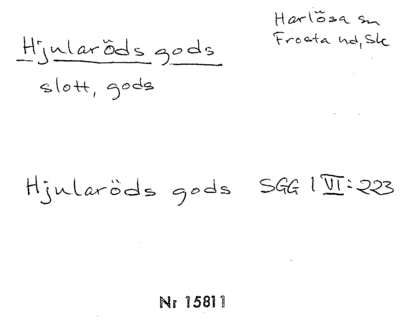 Hjularöds gods
Harlösa sn
Frosta hd, Sk
slott, gods
Hjularöds gods SGG 1 VI:223
Nr 15811